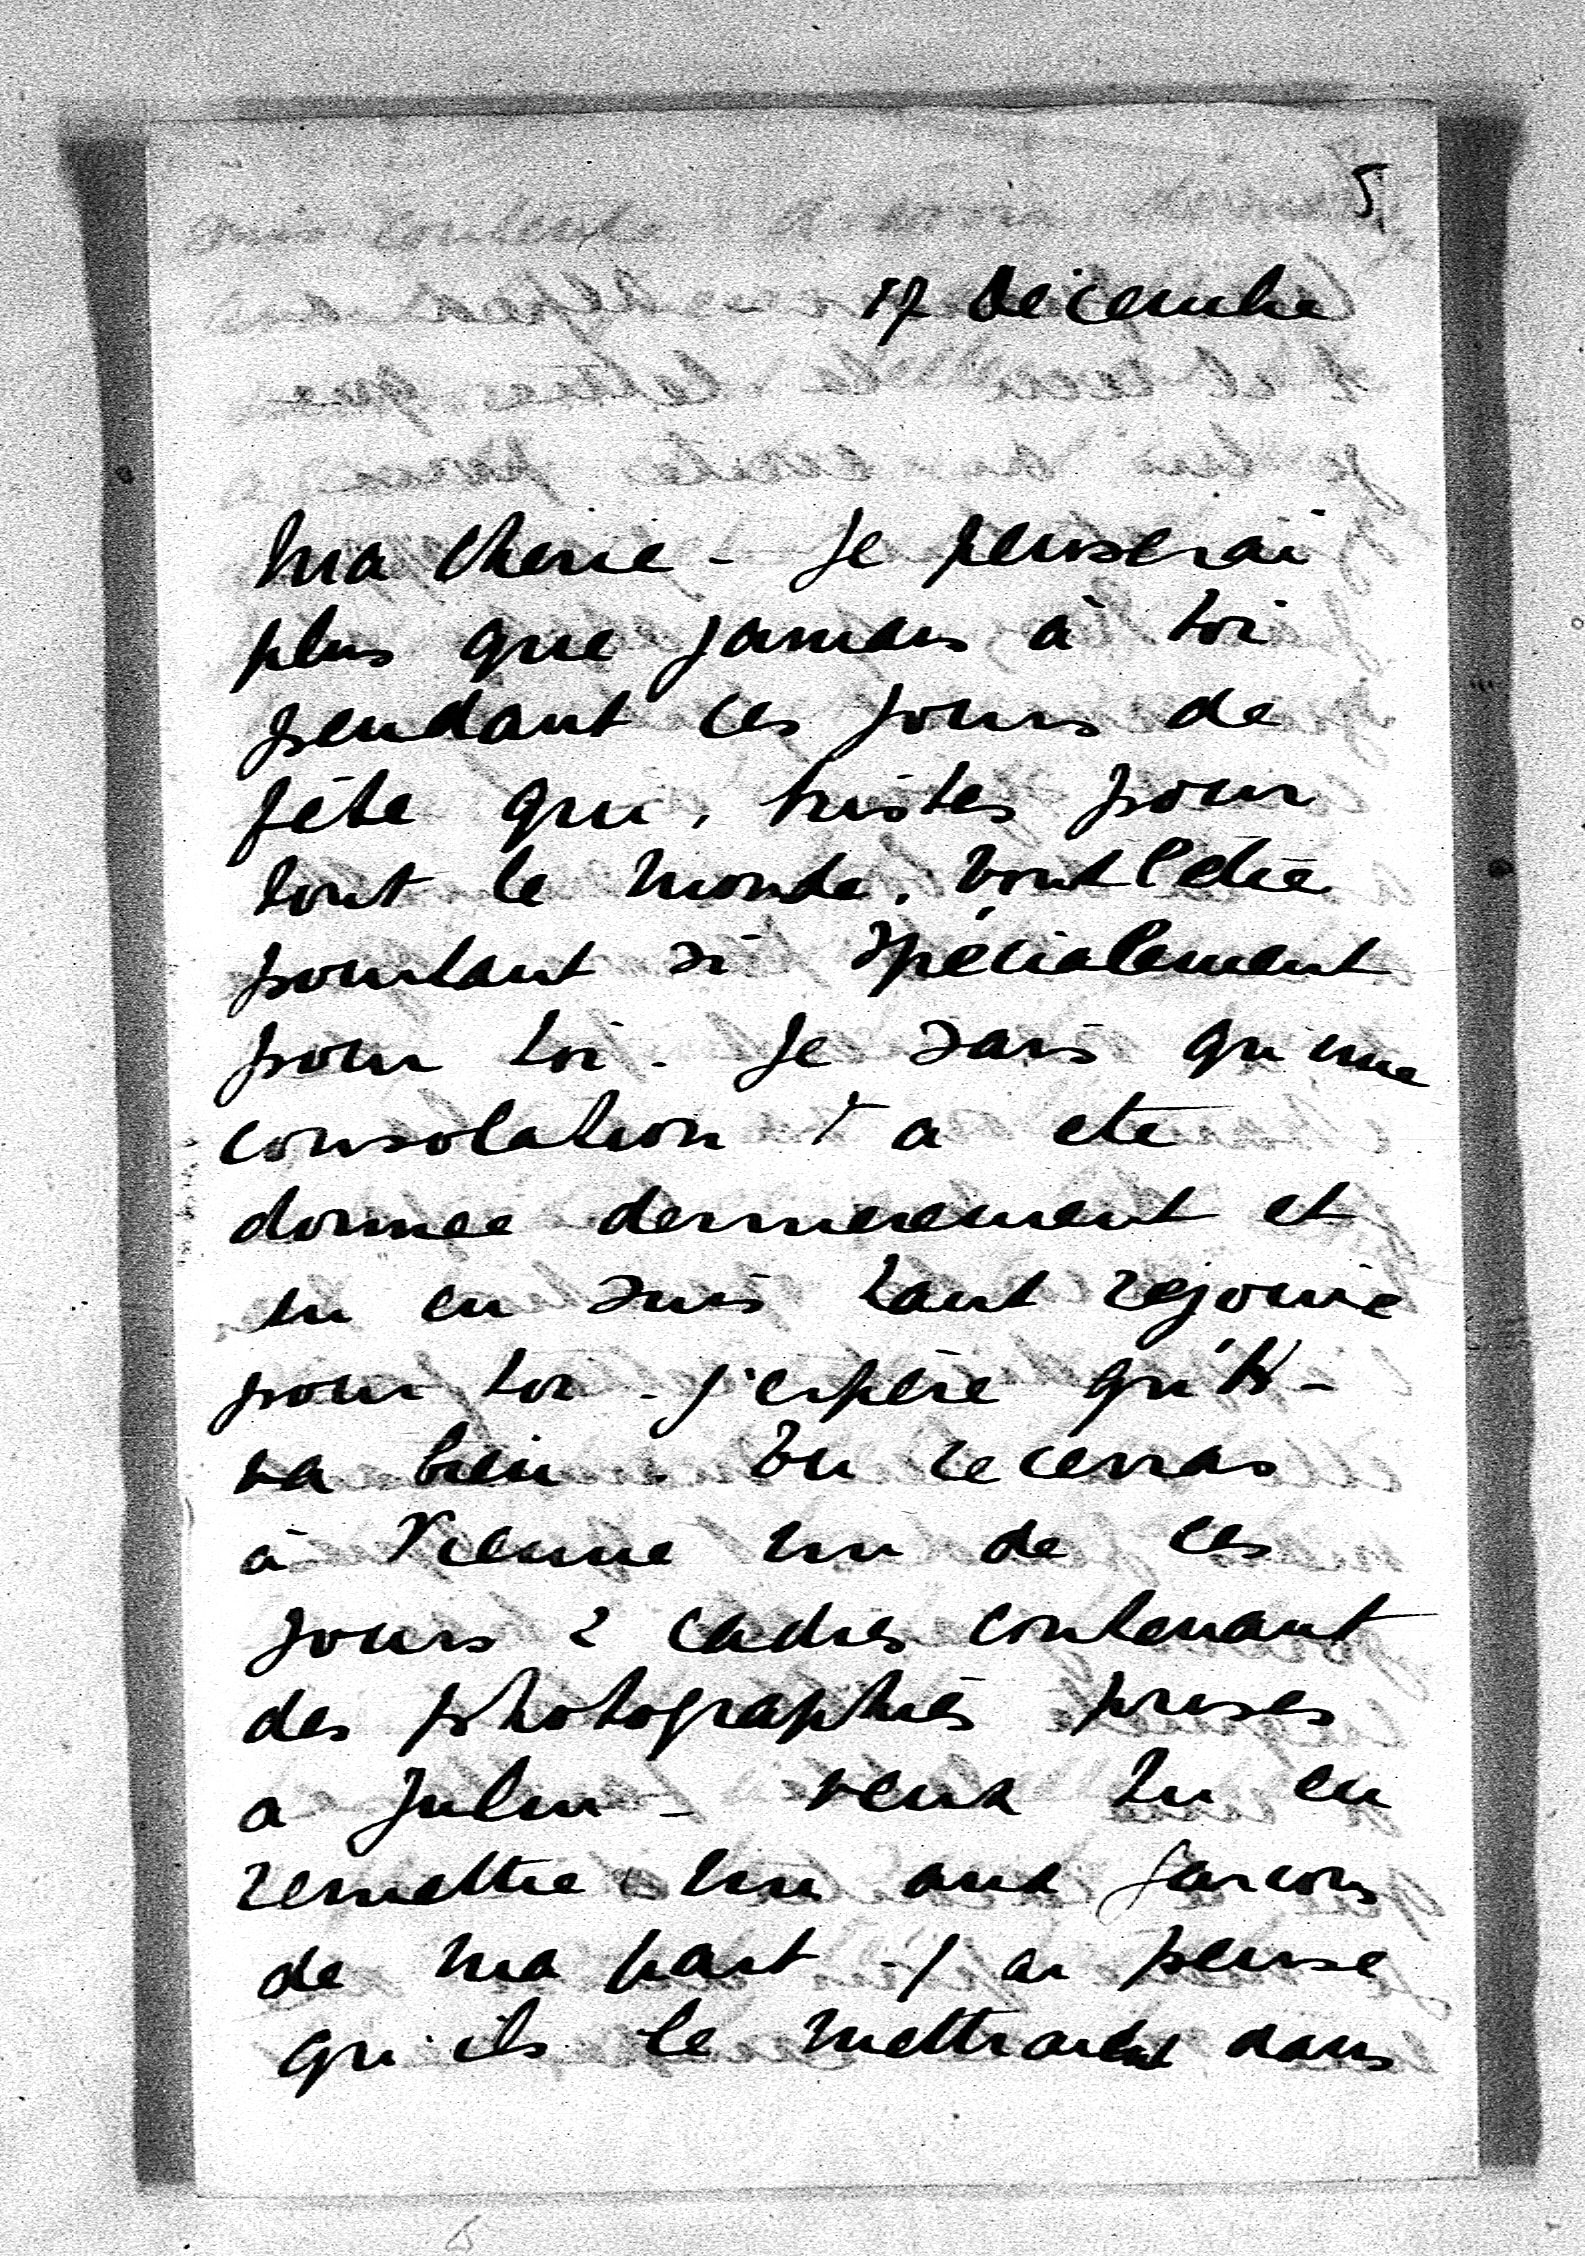 5
17 Decembre
Ma Cherie - Je penserai
plus que jamais à toi
pendant ces jours de
fête qui, tristes pour
tout le monde, vont l'etre
pourtant si spécialement
pour toi. Je sais qu'une
consolation t'a ete
donnee dernierement et
m'en suis tant rejouie
pour toi - j'espère qu'
va bien. Tu recevras
à Vienne un de ces
jours 2 cadres contenant
des photographies prises
a - veux tu en
remettre un aux garcons
de ma part - j'ai pense
qu'ils le mettraient dans